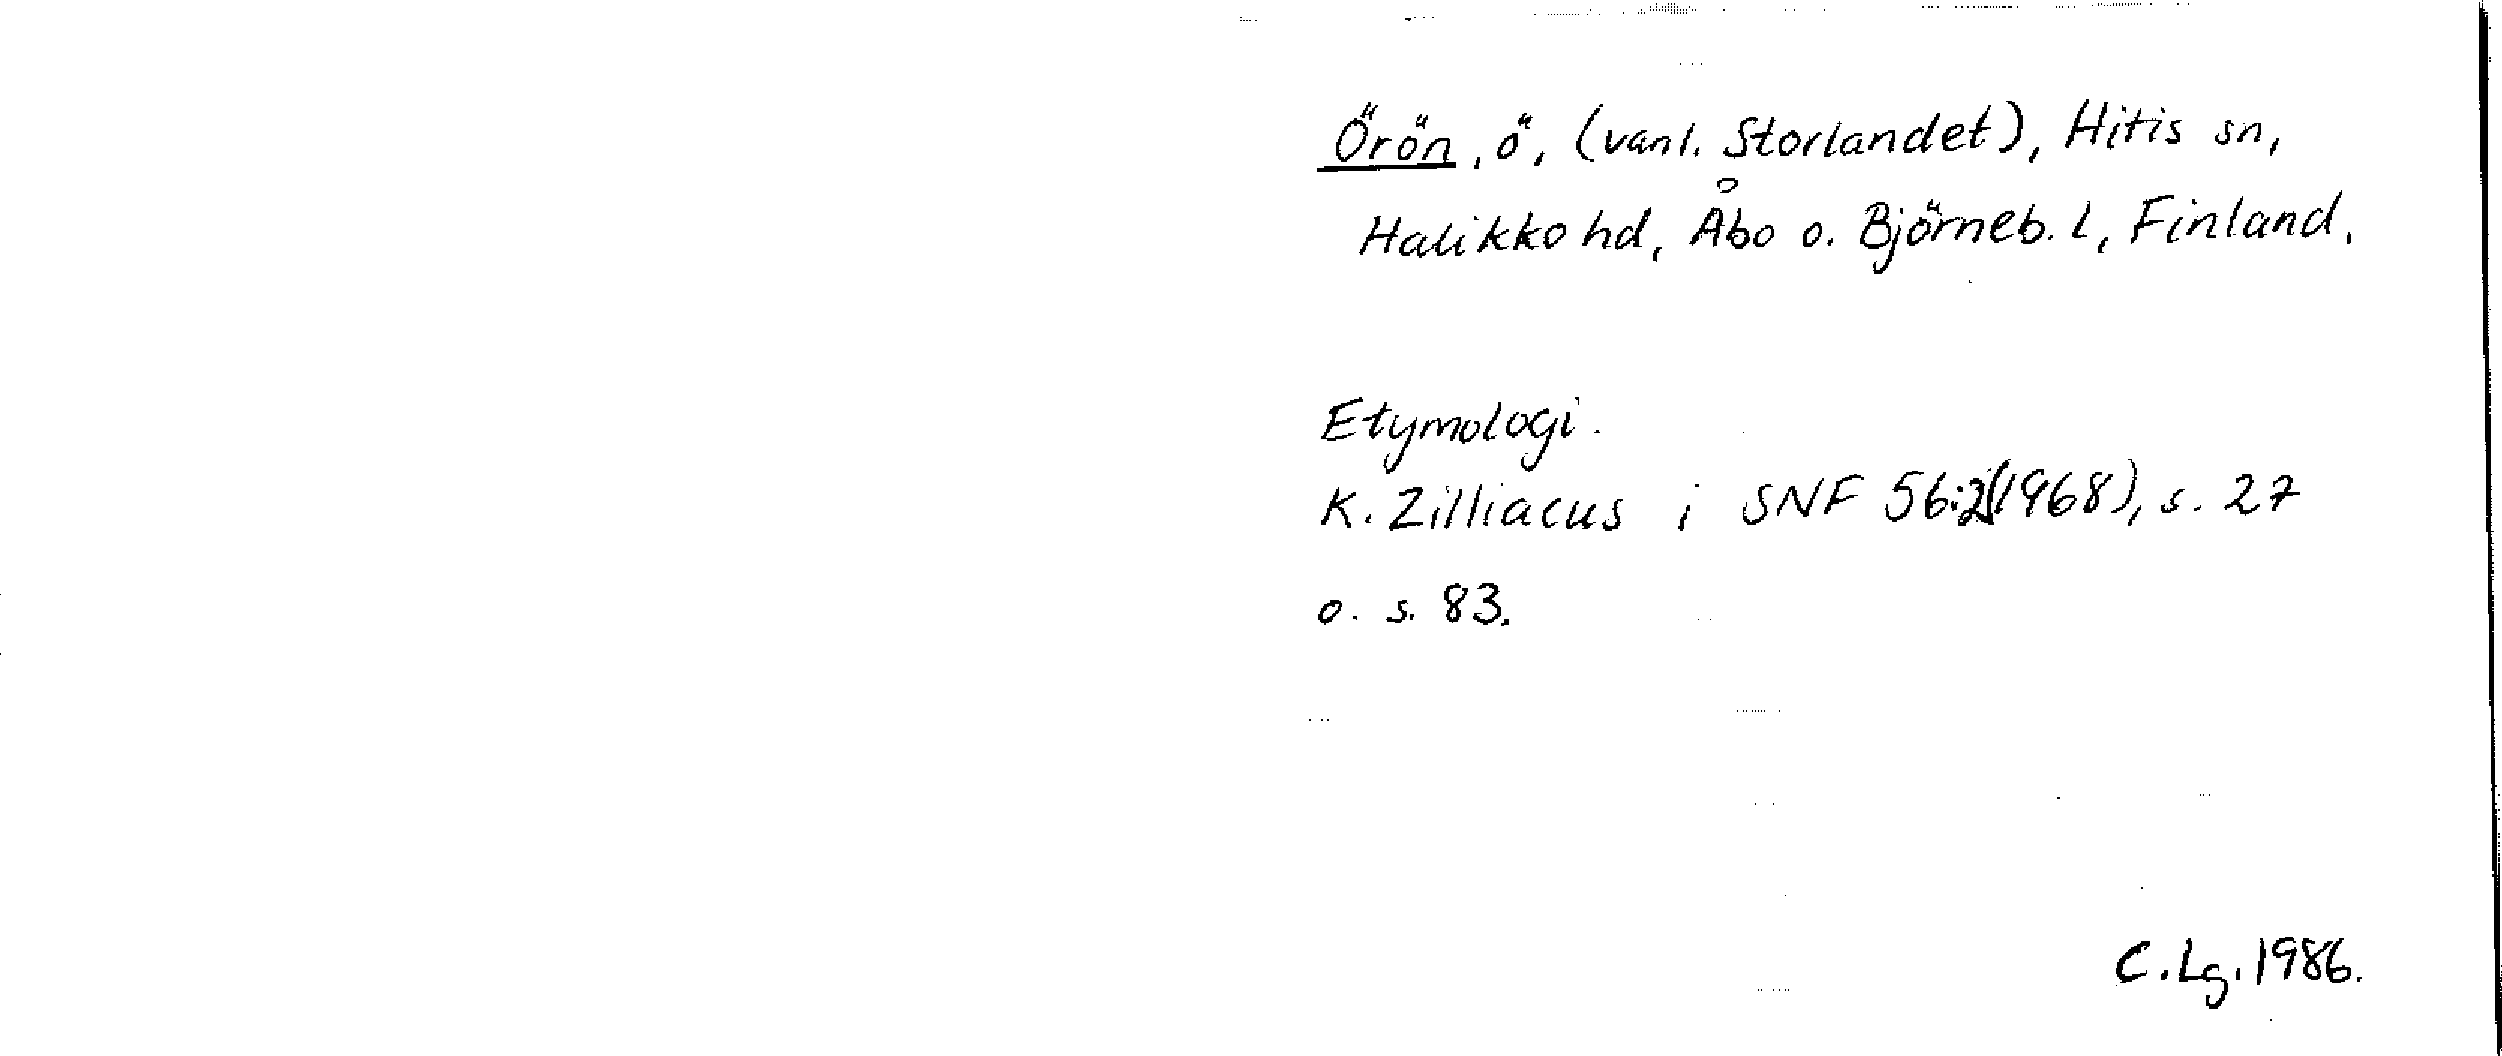 Örön, ö, (vanl. Storlandet), Hitis sn,
Halikko hd, Åbo o. Björneb. l, Finland.
Etymologi.
K. Zilliacus i SNF 56:2(1968), s. 27
o. s. 83.
C. Lg. 1986.